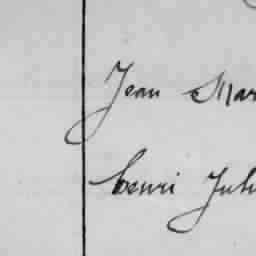 Jean Mar
Henri Jul